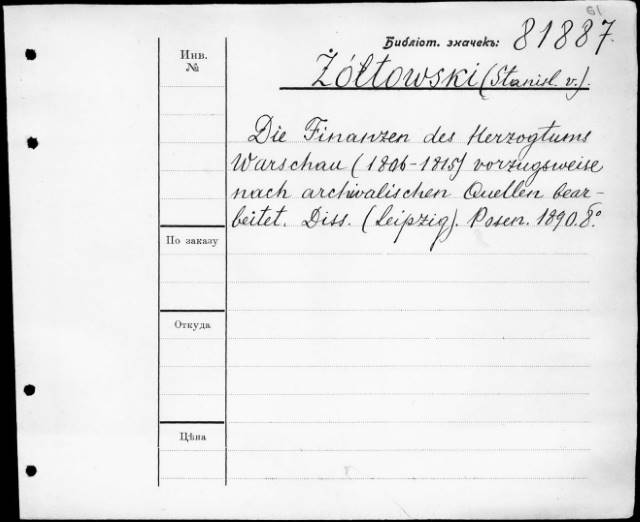 61
Библіот. значекъ: 81887.
Инв.
№
Żółtowski (Stanisl. v.).
Die Finanzen des Herzogtums
Warschau (1806-1815) vorzugsweise
nach archivalischen Quellen bear-
beitet. Diss. (Leipzig). Posen. 1890. 8°
По заказу
Откуда
Цѣна